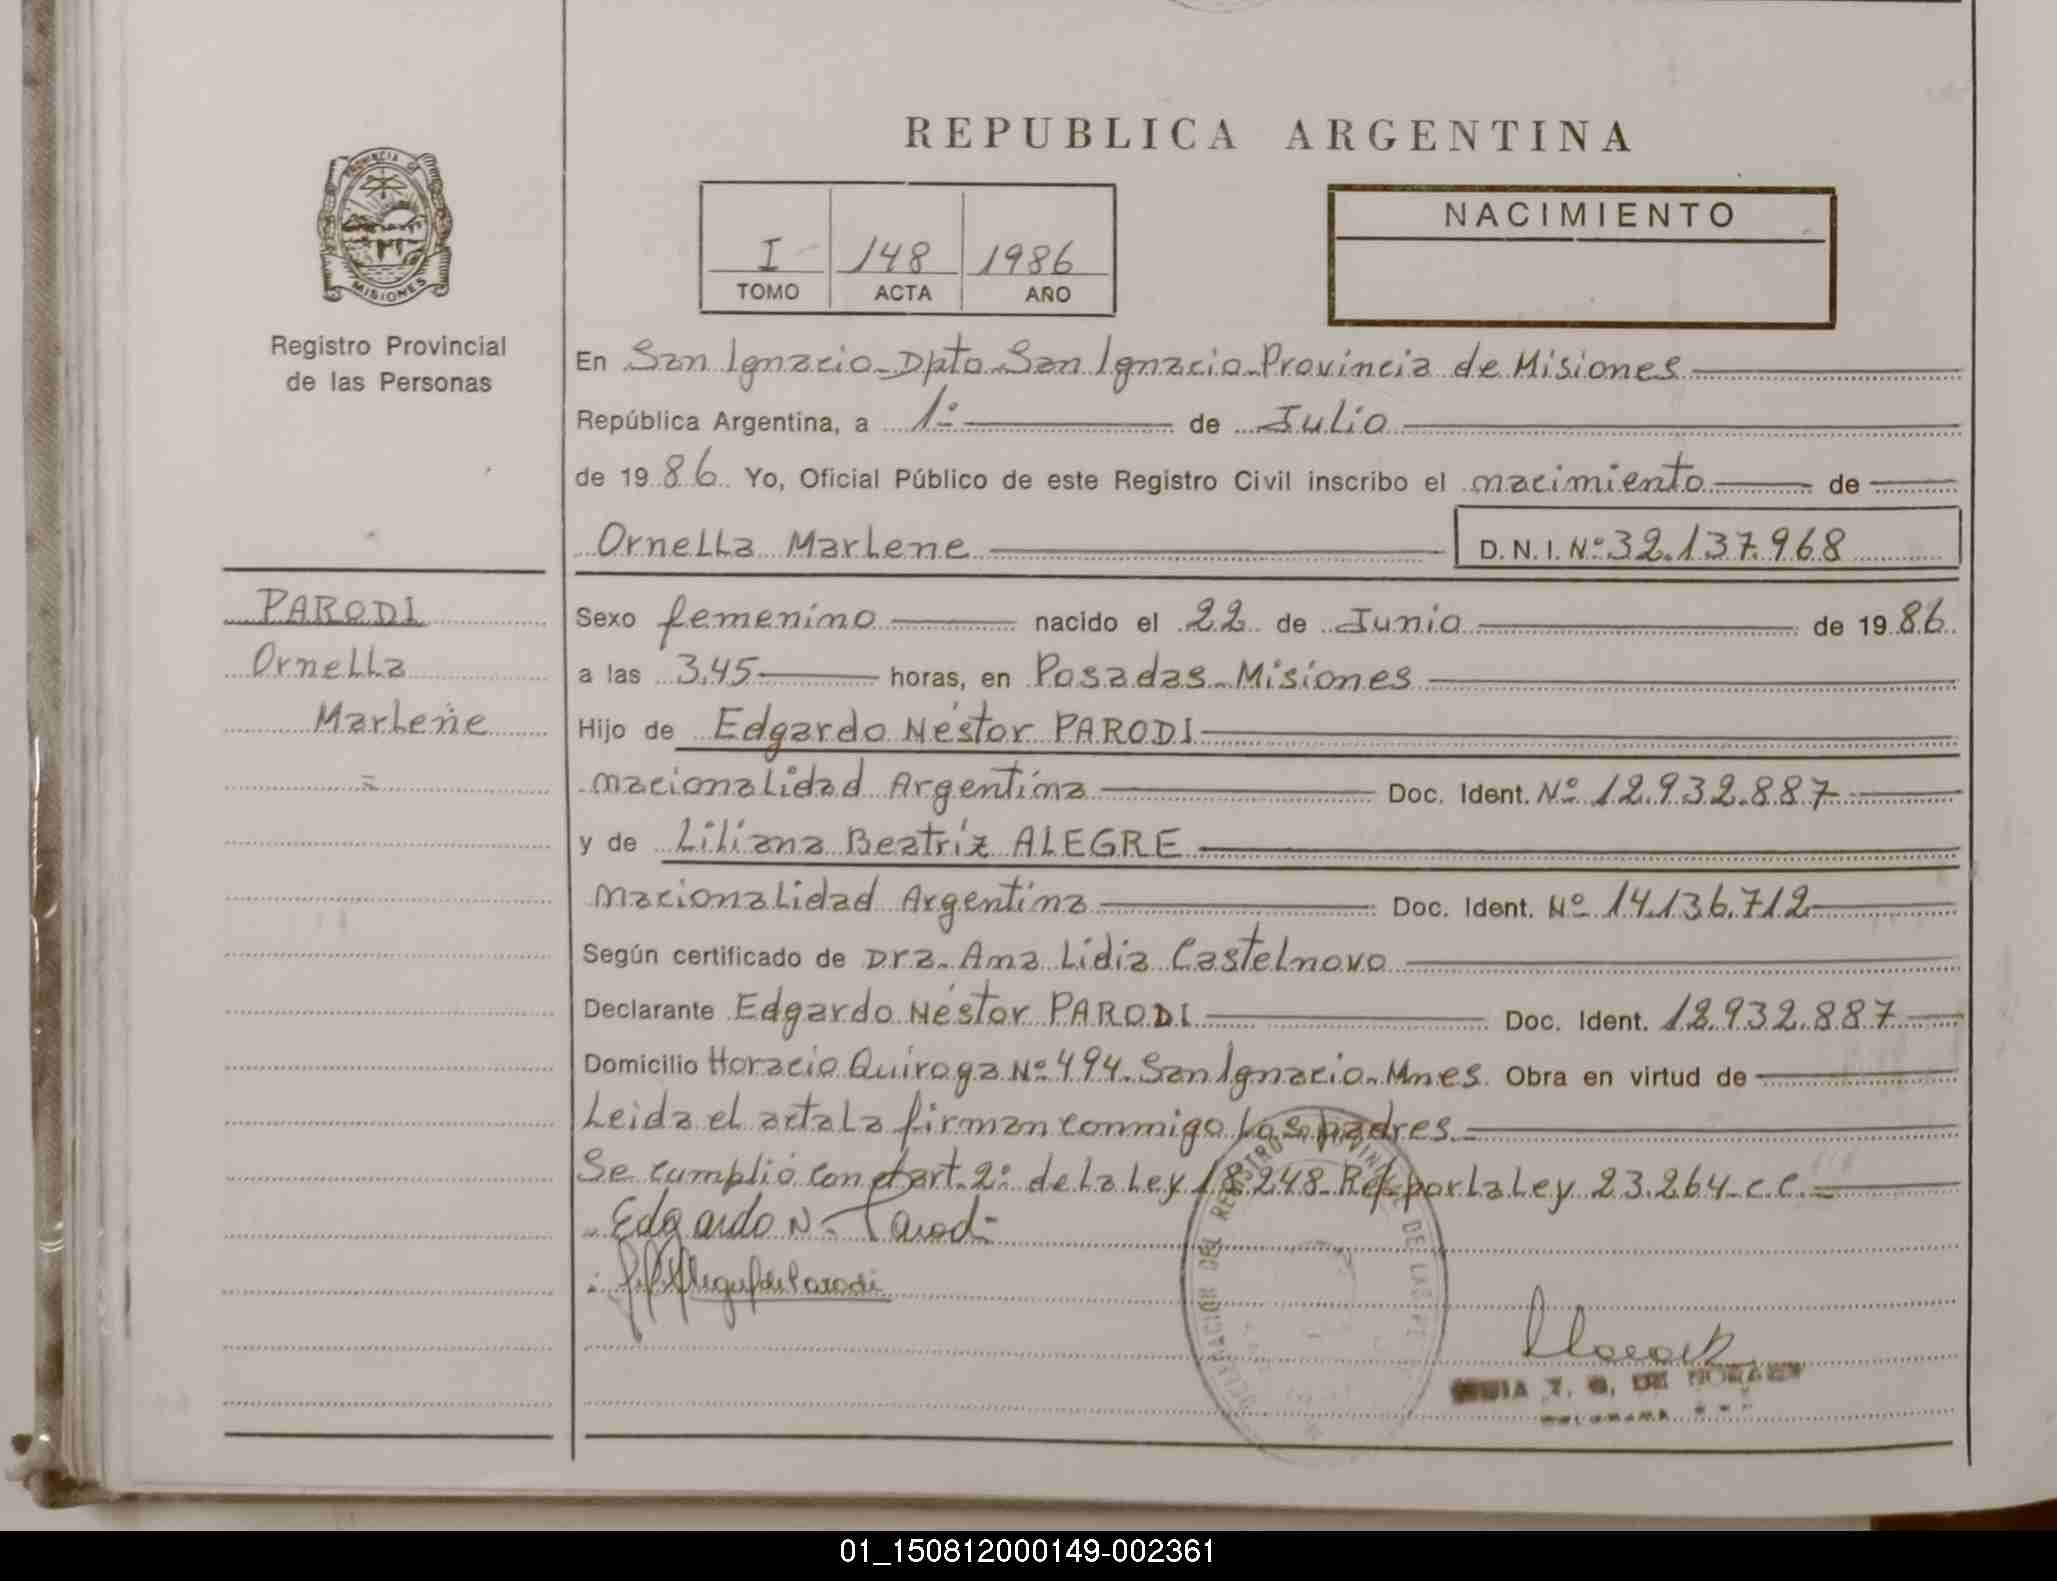 REPUBLICA ARGENTINA
PROVINCIA DE
MISIONES
Registro Provincial
de las Personas
I 148 1986
TOMO ACTA AÑO
NACIMIENTO
En San Ignacio - Dpto. San Ignacio - Provincia de Misiones
República Argentina, a 1º de Julio
de 1986 Yo, Oficial Público de este Registro Civil inscribo el nacimiento de
Ornella Marlene D.N.I. Nº 32.137.968
PARODI
Ornella
Marlene
Sexo femenino nacido el 22 de Junio de 1986
a las 3,45 horas, en Posadas - Misiones
Hijo de Edgardo Néstor PARODI
nacionalidad Argentina Doc. Ident. Nº 12.932.887
y de Liliana Beatríz ALEGRE
nacionalidad Argentina Doc. Ident. Nº 14.136.712
Según certificado de Dra. Ana Lidia Castelnovo
Declarante Edgardo Néstor PARODI Doc. Ident. 12.932.887
Domicilio Horacio Quiroga Nº 494 - San Ignacio - Mnes Obra en virtud de
Leida el acta la firman conmigo los padres
Se cumplió con el art. 2º de la Ley 18.248 - Ref. por la Ley 23.264 - C.C.
Edgardo N. Parodi
de Parodi
DELEGACION DEL REGISTRO PROVINCIAL DE LAS
DE
01_150812000149-002361